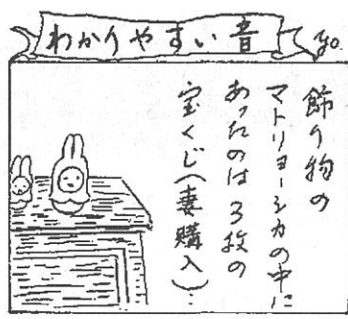 わかりやすい音
飾り物の
マトリョーシカの中に
あったのは3枚の
宝くじ(妻購入)…